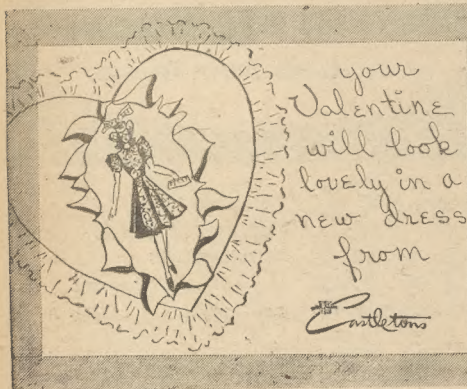 your
Valentine
will look
lovely in a
new dress
from
Castletons